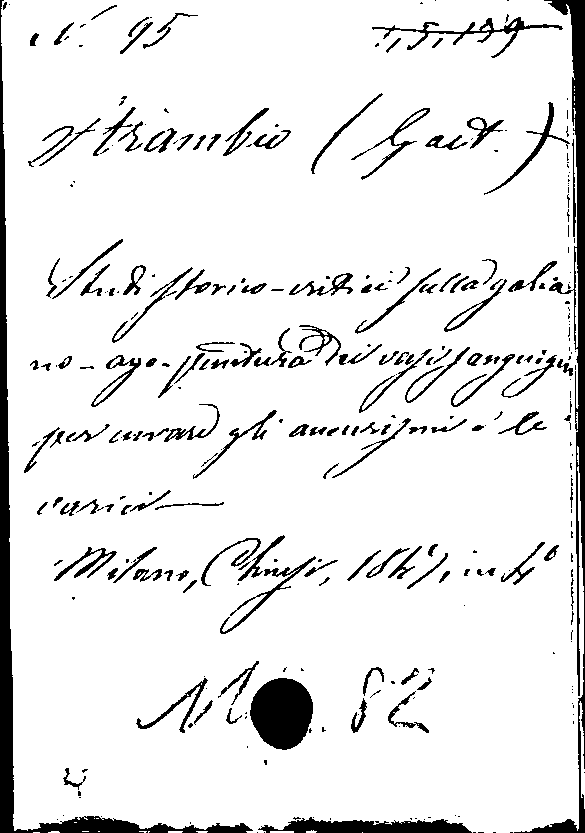 N. 95
1,5,139
Strambio (Gaet.)
Studi storico-critici sulla galva
no-ago-puntura dei vasi sanguigni
per curare gli aneurismi e le
varici
Milano, Chiusi, 1847, in 4º
82